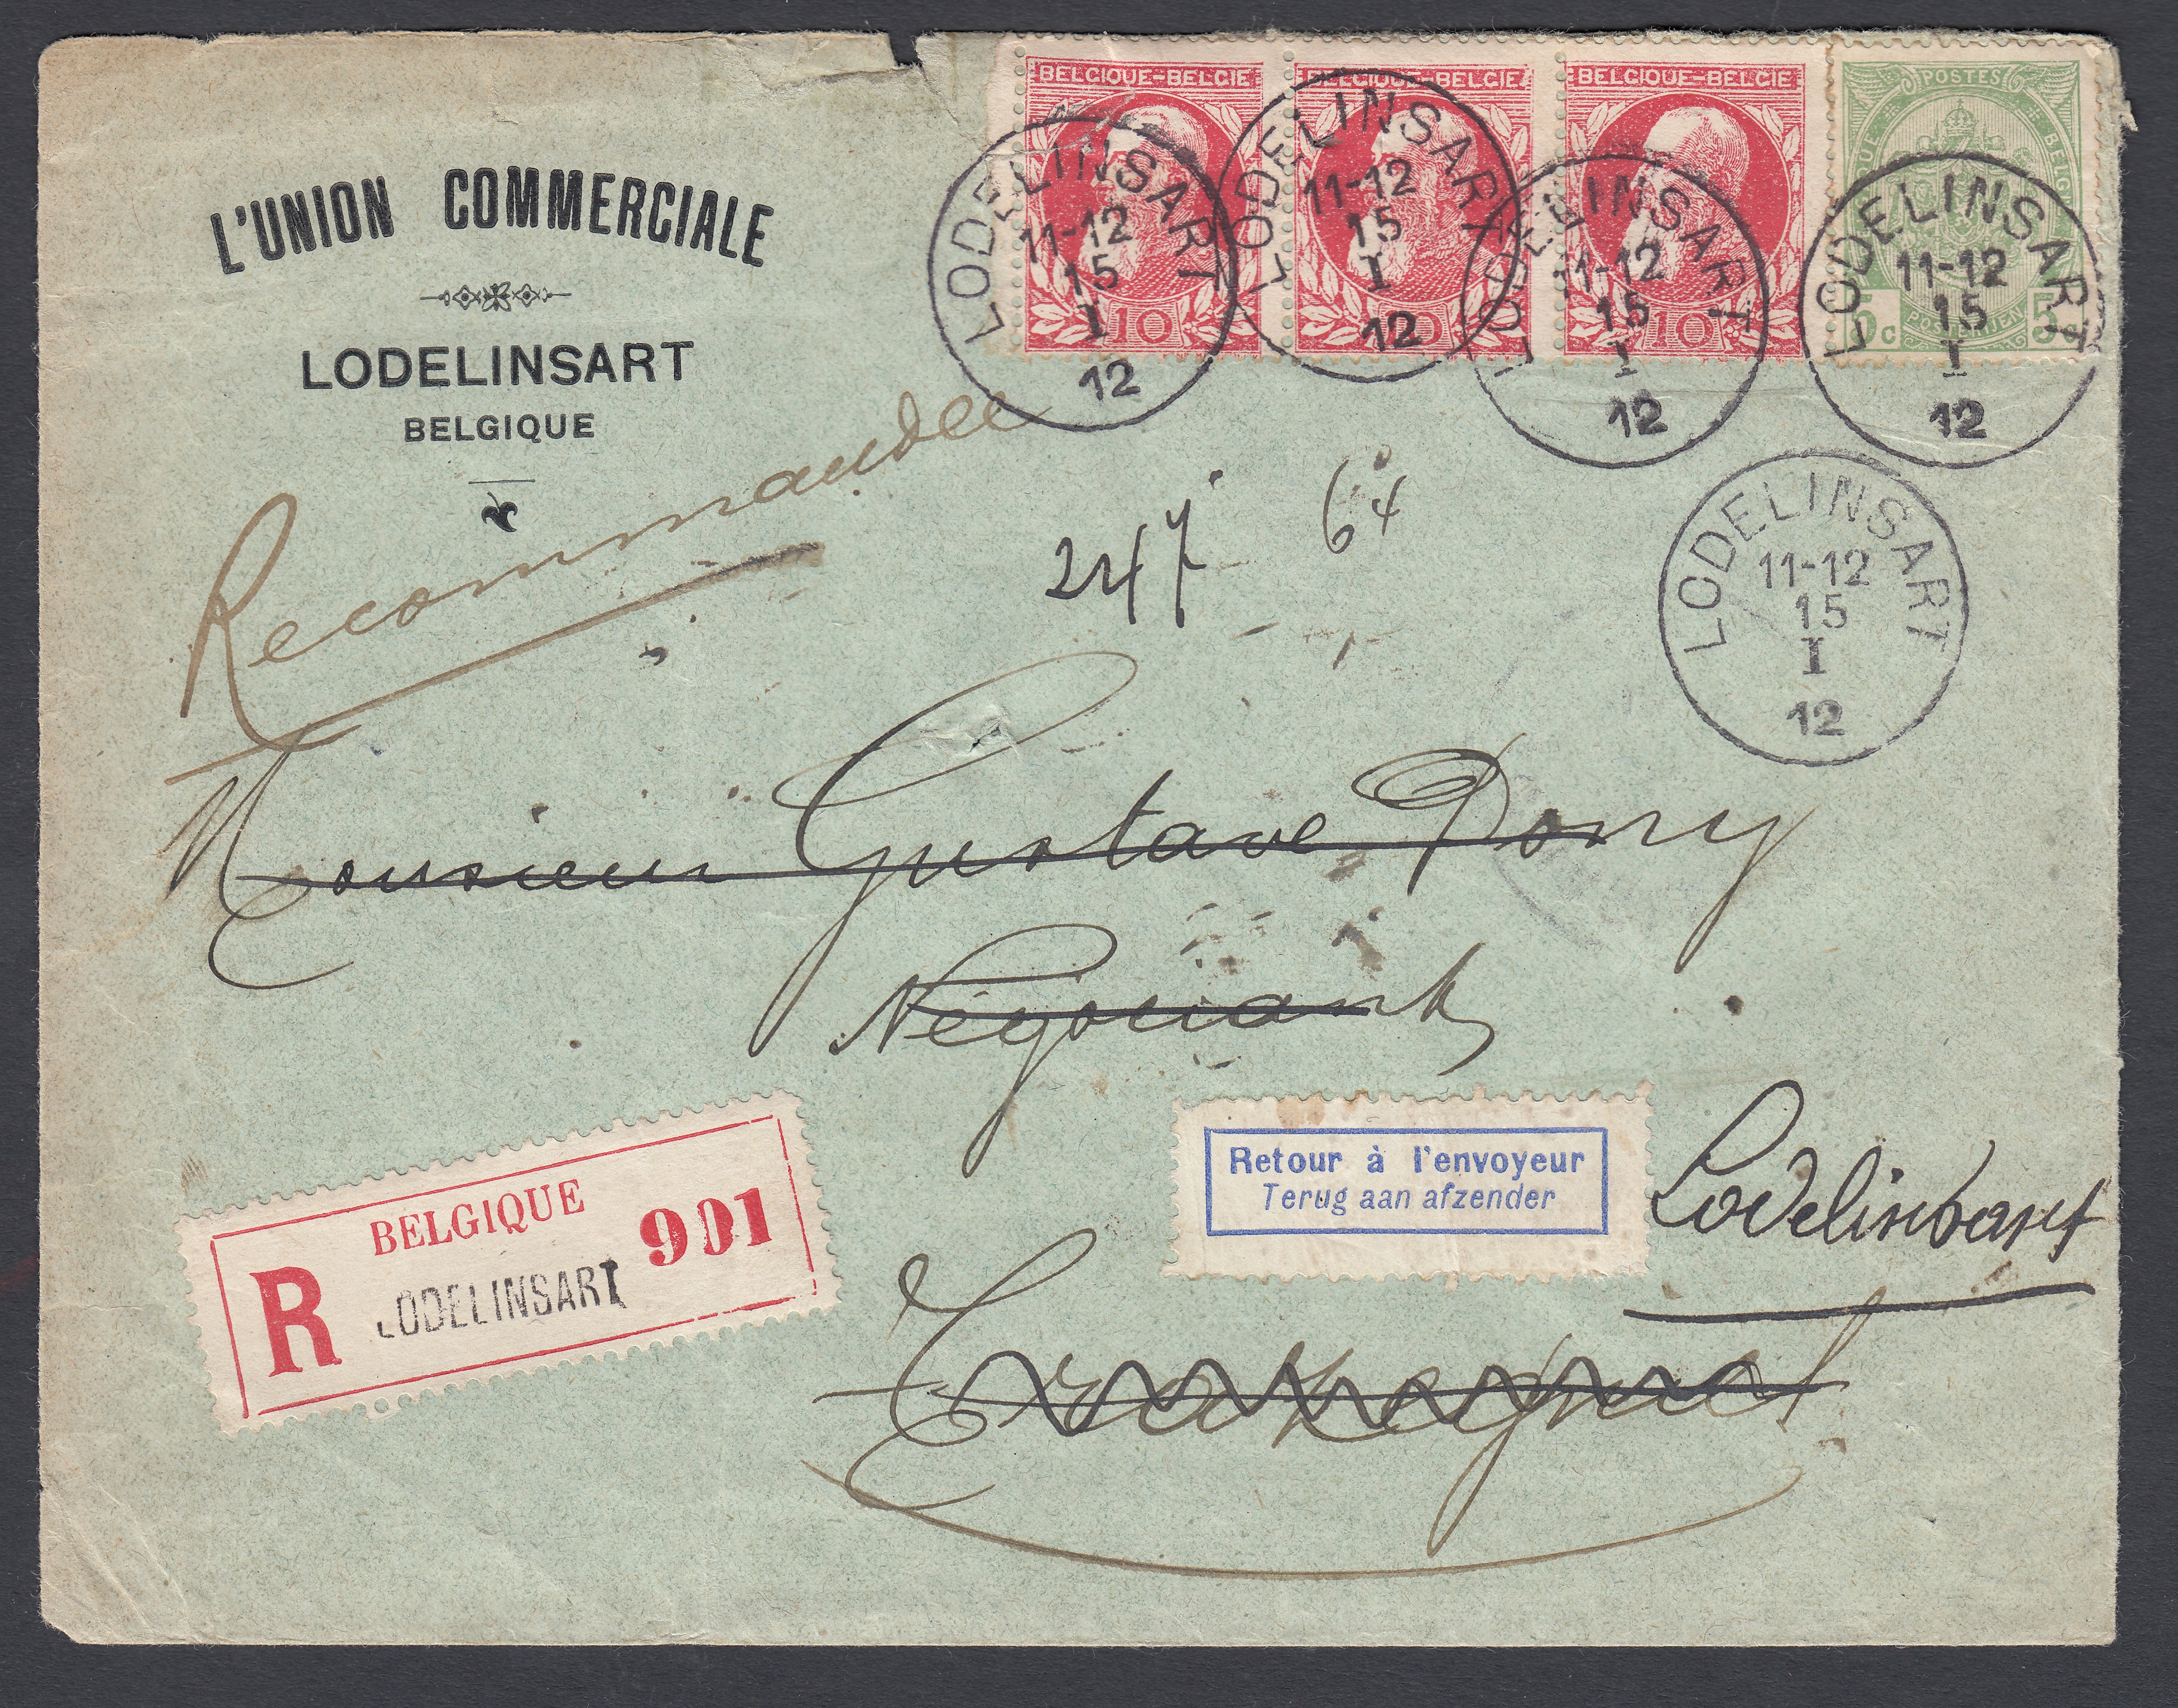 L'UNION COMMERCIALE
LODELINSART
BELGIQUE
BELGIQUE-BELGIE
10
BELGIQUE-BELGIE
BELGIQUE-BELGIE
10
POSTES
5c
5
LODELINSART
11-12
15
I
12
LODELINSART
11-12
15
I
12
LODELINSART
11-12
15
I
12
LODELINSART
11-12
15
I
12
Recommandée
247
64
LODELINSART
11-12
15
I
12
Monsieur Gustave Dony
Négociant
BELGIQUE
R
901
LODELINSART
Retour à l'envoyeur
Terug aan afzender
Lodelinsart